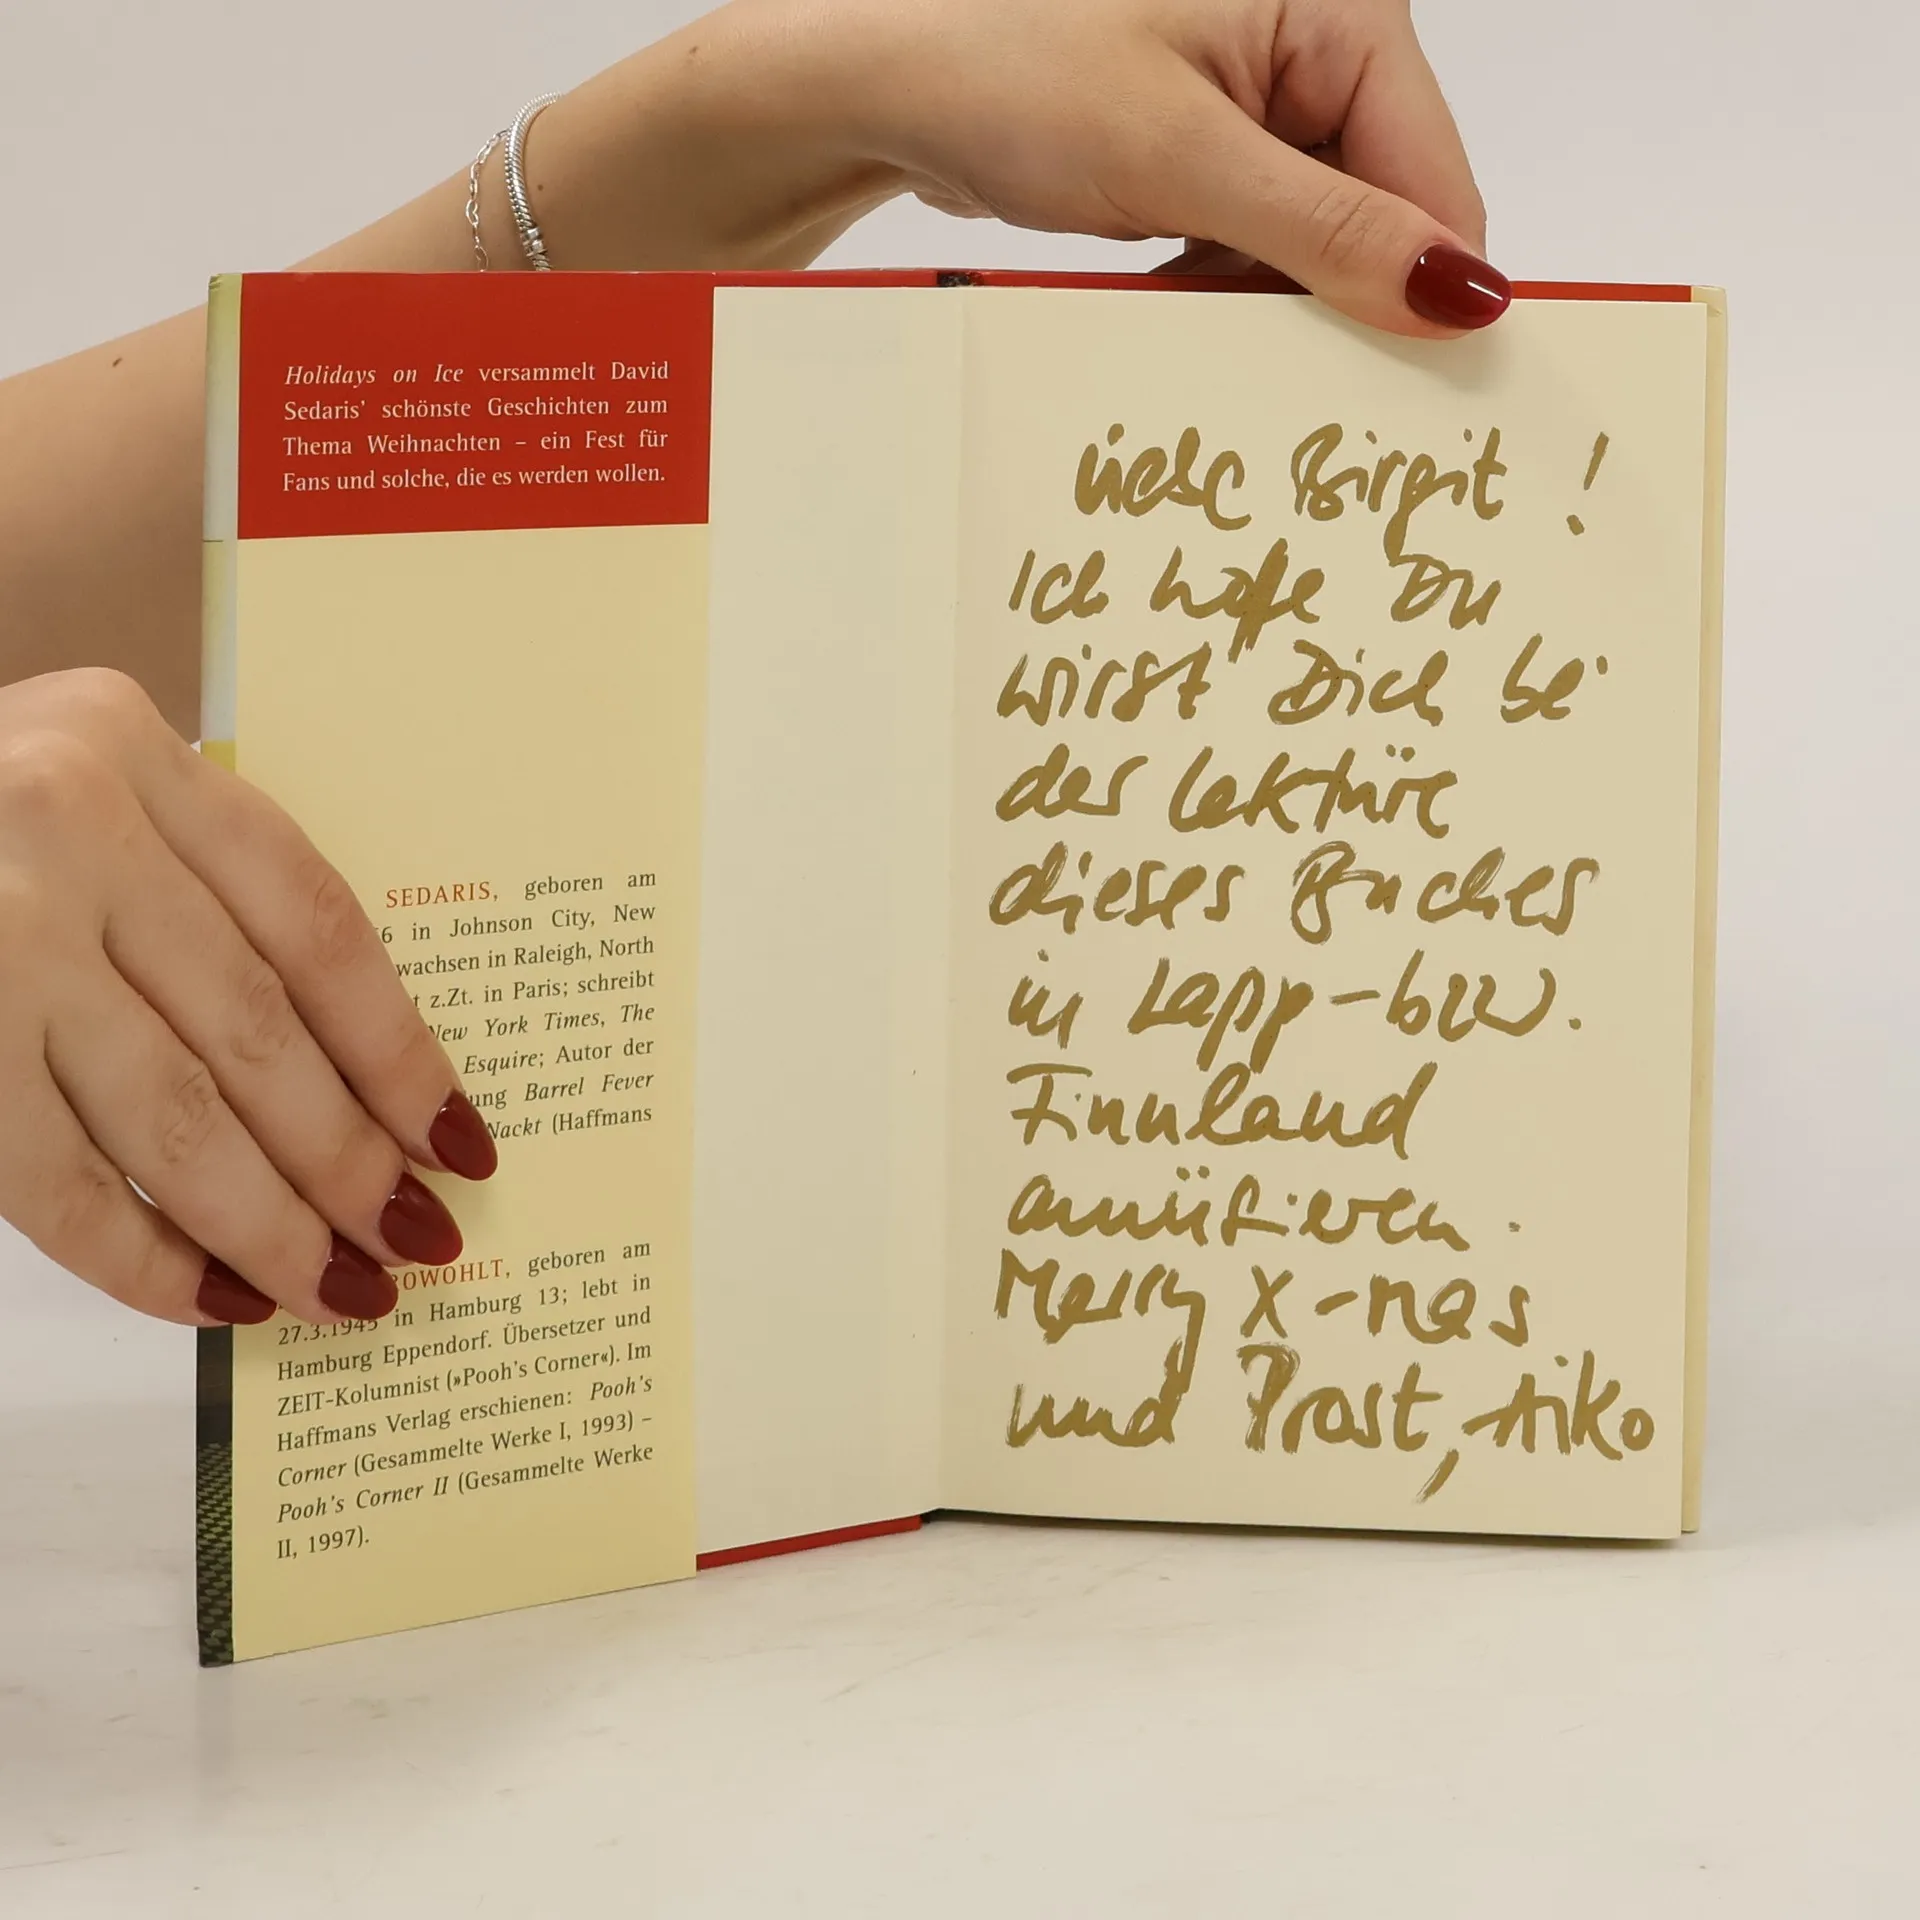 Holidays on Ice versammelt David
Sedaris' schönste Geschichten zum
Thema Weihnachten – ein Fest für
Fans und solche, die es werden wollen.
SEDARIS, geboren am
6 in Johnson City, New
wachsen in Raleigh, North
t z.Zt. in Paris; schreibt
New York Times, The
Esquire; Autor der
ung Barrel Fever
Nackt (Haffmans
ROWOHLT, geboren am
27.3.1945 in Hamburg 13; lebt in
Hamburg Eppendorf. Übersetzer und
ZEIT-Kolumnist (»Pooh's Corner«). Im
Haffmans Verlag erschienen: Pooh's
Corner (Gesammelte Werke I, 1993) –
Pooh's Corner II (Gesammelte Werke
II, 1997).
Liebe Birgit !
Ich hoffe Du
wirst Dich bei
der Lektüre
dieses Buches
in Lapp-bzw.
Finnland
amüsieren.
Merry X-mas
und Prost, Aiko